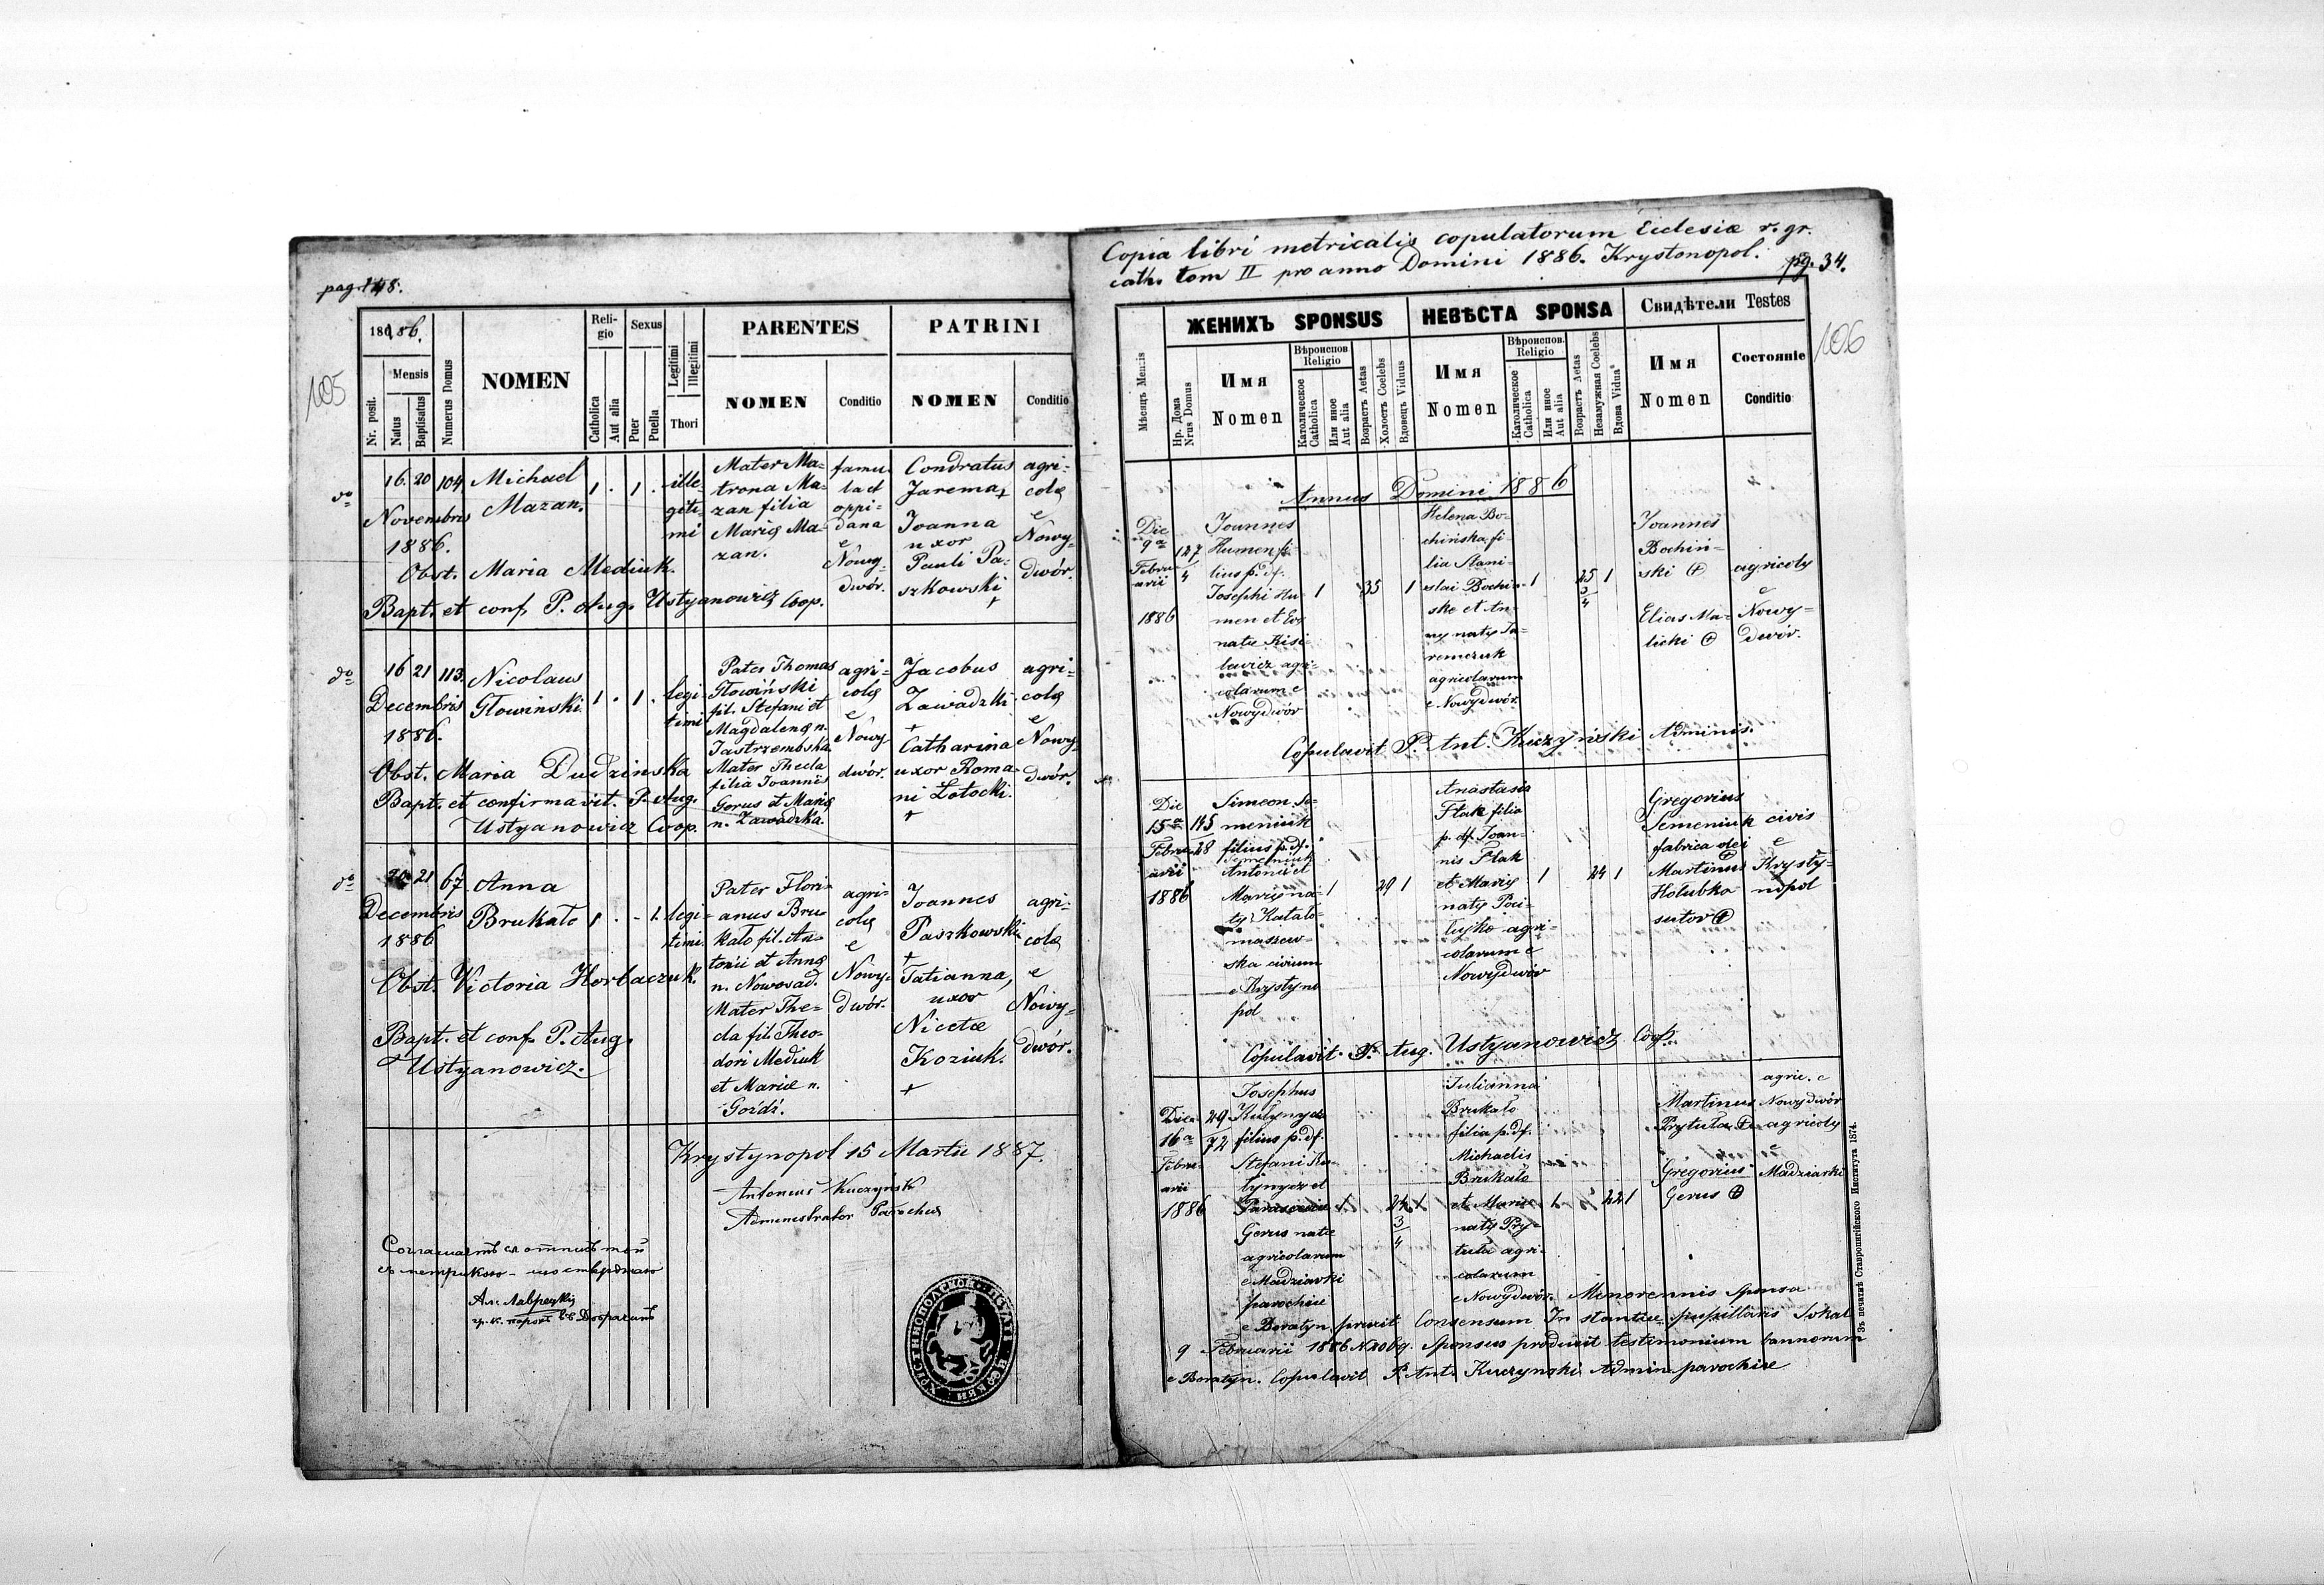 pag. 148.
105
1886.
Mensis
Nr. posit.
Natus
Baptisatus
Numerus Domus
NOMEN
Reli-
gio
Catholica
Aut alia
Sexus
Puer
Puella
Legitimi
Illegitimi
Thori
PARENTES
NOMEN
Conditio
PATRINI
NOMEN
Conditio
do
16. 20 104 Michael
Mazan.
1 . 1 .
Novembris
1886.
ille-
giti-
mi
Mater Ma-
trona Ma-
zan filia
Marię Ma-
zan.
famu-
la et
oppi-
dana
e
Nowy-
dwór.
Condratus
Jarema +
Joanna
uxor
Pauli Pa-
szkowski
+
agri-
colę
e
Nowy-
dwór.
Obst. Maria Mediuk.
Bapt. et conf. P. Aug. Ustyanowicz Coop.
do
16 21 113. Nicolaus
Głowinski.
1 . 1 .
Decembris
1886.
legi-
timi
Pater Thomas
Głowiński
fil. Stefani et
Magdalenę n.
Jastrzembska.
Mater Thecla
filia Joannis
Gerus et Marię
n. Zawadzka.
agri-
colę
e
Nowy-
dwór.
Jacobus
Zawadzki
+
Catharina
uxor Roma-
ni Łotocki.
+
agri-
colę
e
Nowy-
dwór.
Obst. Maria Dudzinska
Bapt. et confirmavit. P. Aug.
Ustyanowicz Coop.
do
20 21 67. Anna
Brukało
1 . - 1.
Decembris
1886
legi-
timi.
Pater Flori-
anus Bru-
kało fil. An-
tonii et Annę
n. Nowosad.
Mater The-
cla fil. Theo-
dori Mediuk
et Mariæ n.
Goźdź.
agri-
colę
e
Nowy-
dwór.
Joannes
Paszkowski
+
Tatianna,
uxor
Nicetæ
Koziuk.
+
agri-
colę
e
Nowy-
dwór.
Obst. Victoria Horbaczuk.
Bapt. et conf. P. Aug.
Ustyanowicz.
Krystynopol 15 Martii 1887.
Antonius Kuczyński
Administrator Parochus
Copia libri metricalis copulatorum Ecclesiæ r. gr.
cath. tom II pro anno Domini 1886. Krystonopol. pg. 34.
106
Мѣсяцъ Mensis
ЖЕНИХЪ SPONSUS
Нр. Дома
Nrus Domus
Имя
Nomen
Вѣроиспов.
Religio
Католическое
Catholica
Или иное
Aut alia
Возрастъ Aetas
Холостъ Coelebs
Вдовецъ Viduus
НЕВѢСТА SPONSA
Имя
Nomen
Вѣроиспов.
Religio
Католическое
Catholica
Или иное
Aut alia
Возрастъ Aetas
Неамужная Coelebs
Вдова Vidua
Свидѣтели Testes
Имя
Nomen
Состояніе
Conditio
Annus Domini 1886
Die
9a
Febru-
arii
1886
127
4
Joannes
Humen fi-
lius p. df.
Josephi Hu-
men et Evę
natę Kisi-
lewicz agri-
colarum e
Nowydwór
1 35 1
Helena Bo-
chińska fi-
lia Stani-
slai Bochiń-
ski et An-
nę natę Ja-
remczuk
agricolarum
e Nowydwór.
1 25 1
3
4
Joannes
Bochiń-
ski +
Elias Ma-
licki +
agricolę
e
Nowy-
dwór.
Copulavit P. Ant. Kuczyński Adminis.
Die
15a
Febru-
arii
1886
145
28
Simeon Se-
meniuk
filius p. df.
Semeniuk
Antonii et
Marię na-
tę Kała-
maszew-
ska civium
e Krystyno
pol
1 29 1
Anastasia
Flak filia
p. df. Joan-
nis Flak
et Marię
natę Pai-
lujko agri-
colarum e
Nowydwór
1 24 1
Gregorius
Semeniuk
fabrica dei
+
Martinus
Holubka
sutor +
civis
e
Krysty-
nopol
Copulavit P. Aug. Ustyanowicz Coop.
Die
16a
Febru-
arii
1886
29
72
Josephus
Kułynycz
filius p. df.
Stefani Ku-
łynycz et
Parasceviæ
Gerus natæ
agricolarum
e Madziarki
parochiæ
e Boratyn.
1 24 1
3
4
Julianna
Brukało
filia p. df.
Michaelis
Brukało
et Marię
natę Pry-
tuła agri-
colarum
e Nowydwór.
1 22 1
Martinus
Prytuła +
Gregorius
Gerus +
agric. e
Nowydwór
agricolę
e
Madziarki
Minorennis Sponsa
Consensum In stantiæ pupillaris Sokal
9 Februarii 1886 Sponsus produxit testimonium bannorum
e Boratyn. Copulavit P. Ant. Kuczynski Admin parochiæ
Зъ печатнѣ Ставропигійского Института 1874.